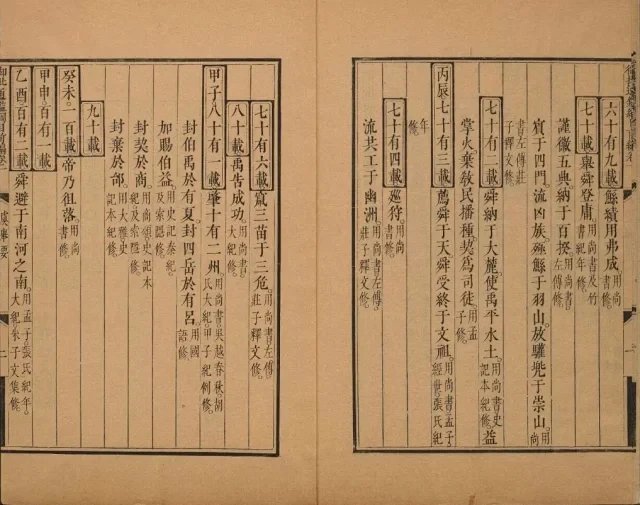 六十有九載鯀績用弗成用尚書修
七十載舉舜登庸用尚書及竹書紀年修
謹徽五典納于百揆用尚書左傳修
賓于四門流凶族殛鯀于羽山放驩兜于崇山用尚
書左傳莊子釋文修
七十有二載舜納于大麓使禹平水土用尚書史記本紀修益
掌火棄敎民播種契爲司徒用孟子修
丙辰七十有三載薦舜于天舜受終于文祖用尚書孟子經世張氏紀
年修
七十有四載巡狩用尚書修
流共工于幽洲用尚書左傳莊子釋文修
七十有六載竄三苗于三危用尚書左傳莊子釋文修
八十載禹告成功用尚書大紀修
甲子八十有一載肇十有二州用尚書吳越春秋胡氏大紀甲子紀例修
封伯於有夏封四岳於有呂用國語修
加賜伯益用史記秦紀及索隱修
封契於商用尚頌史記本紀及索隱修
封棄於邰用大雅史記本紀修
九十載
癸未一百載帝乃徂落用尚書修
甲申百有一載
乙酉百有二載舜避于南河之南用孟子張氏紀年大紀朱子文集修